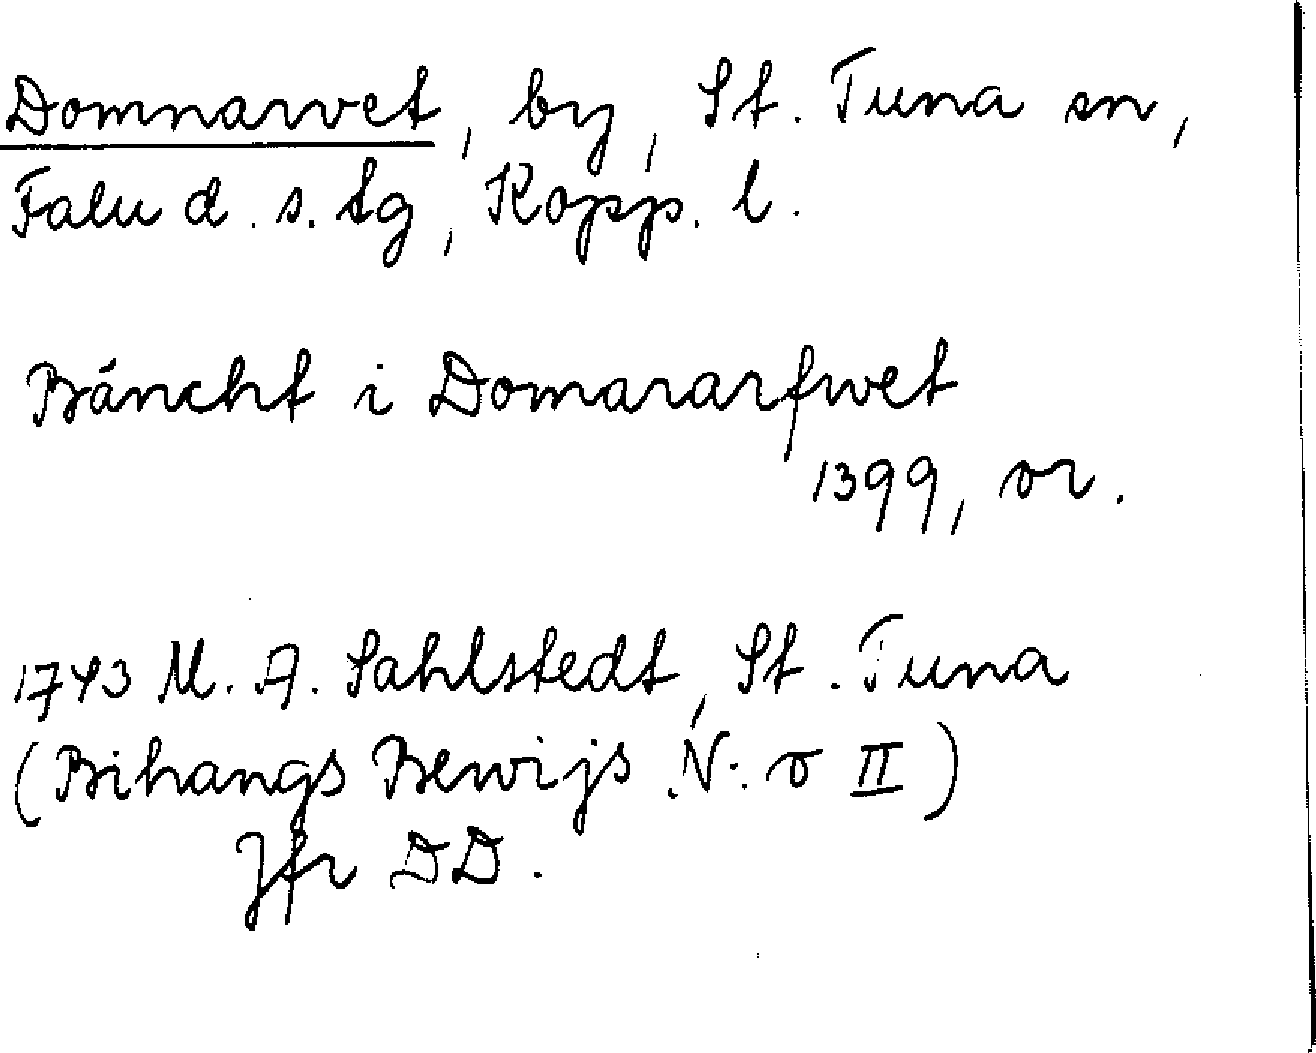 Domnarvet, by, St. Tuna sn,
Falu d. s. tg, Kopp. l.
Bäncht i Domararfwet
1399, or.
1743 M. A. Sahlstedt, St. Tuna
(Bihangs Bewijs N:o II)
Jfr DD.